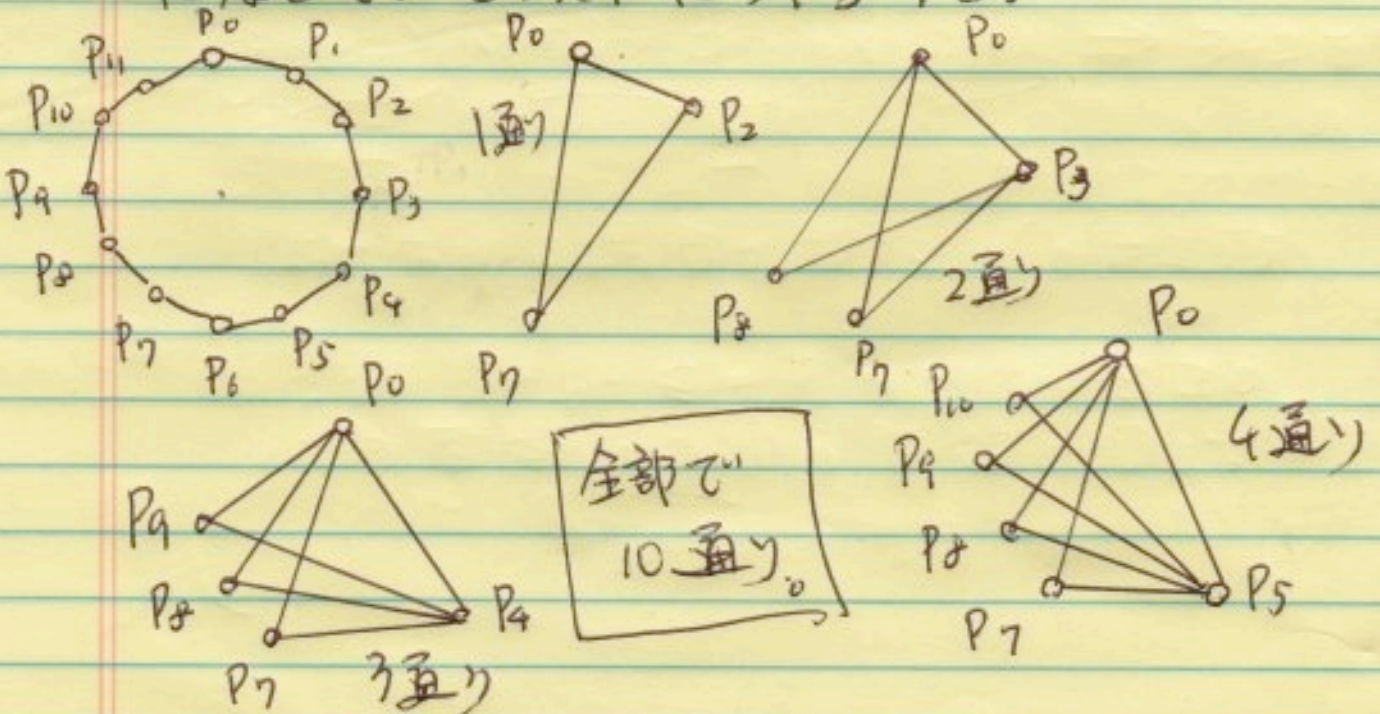 P0
P1
P2
P3
P4
P5
P6
P7
P8
P9
P10
P11
P0
1通り
P2
P7
P0
P3
2通り
P8
P7
P0
P9
P8
P7
P4
3通り
全部で
10通り。
P0
P10
P9
P8
P7
P5
4通り